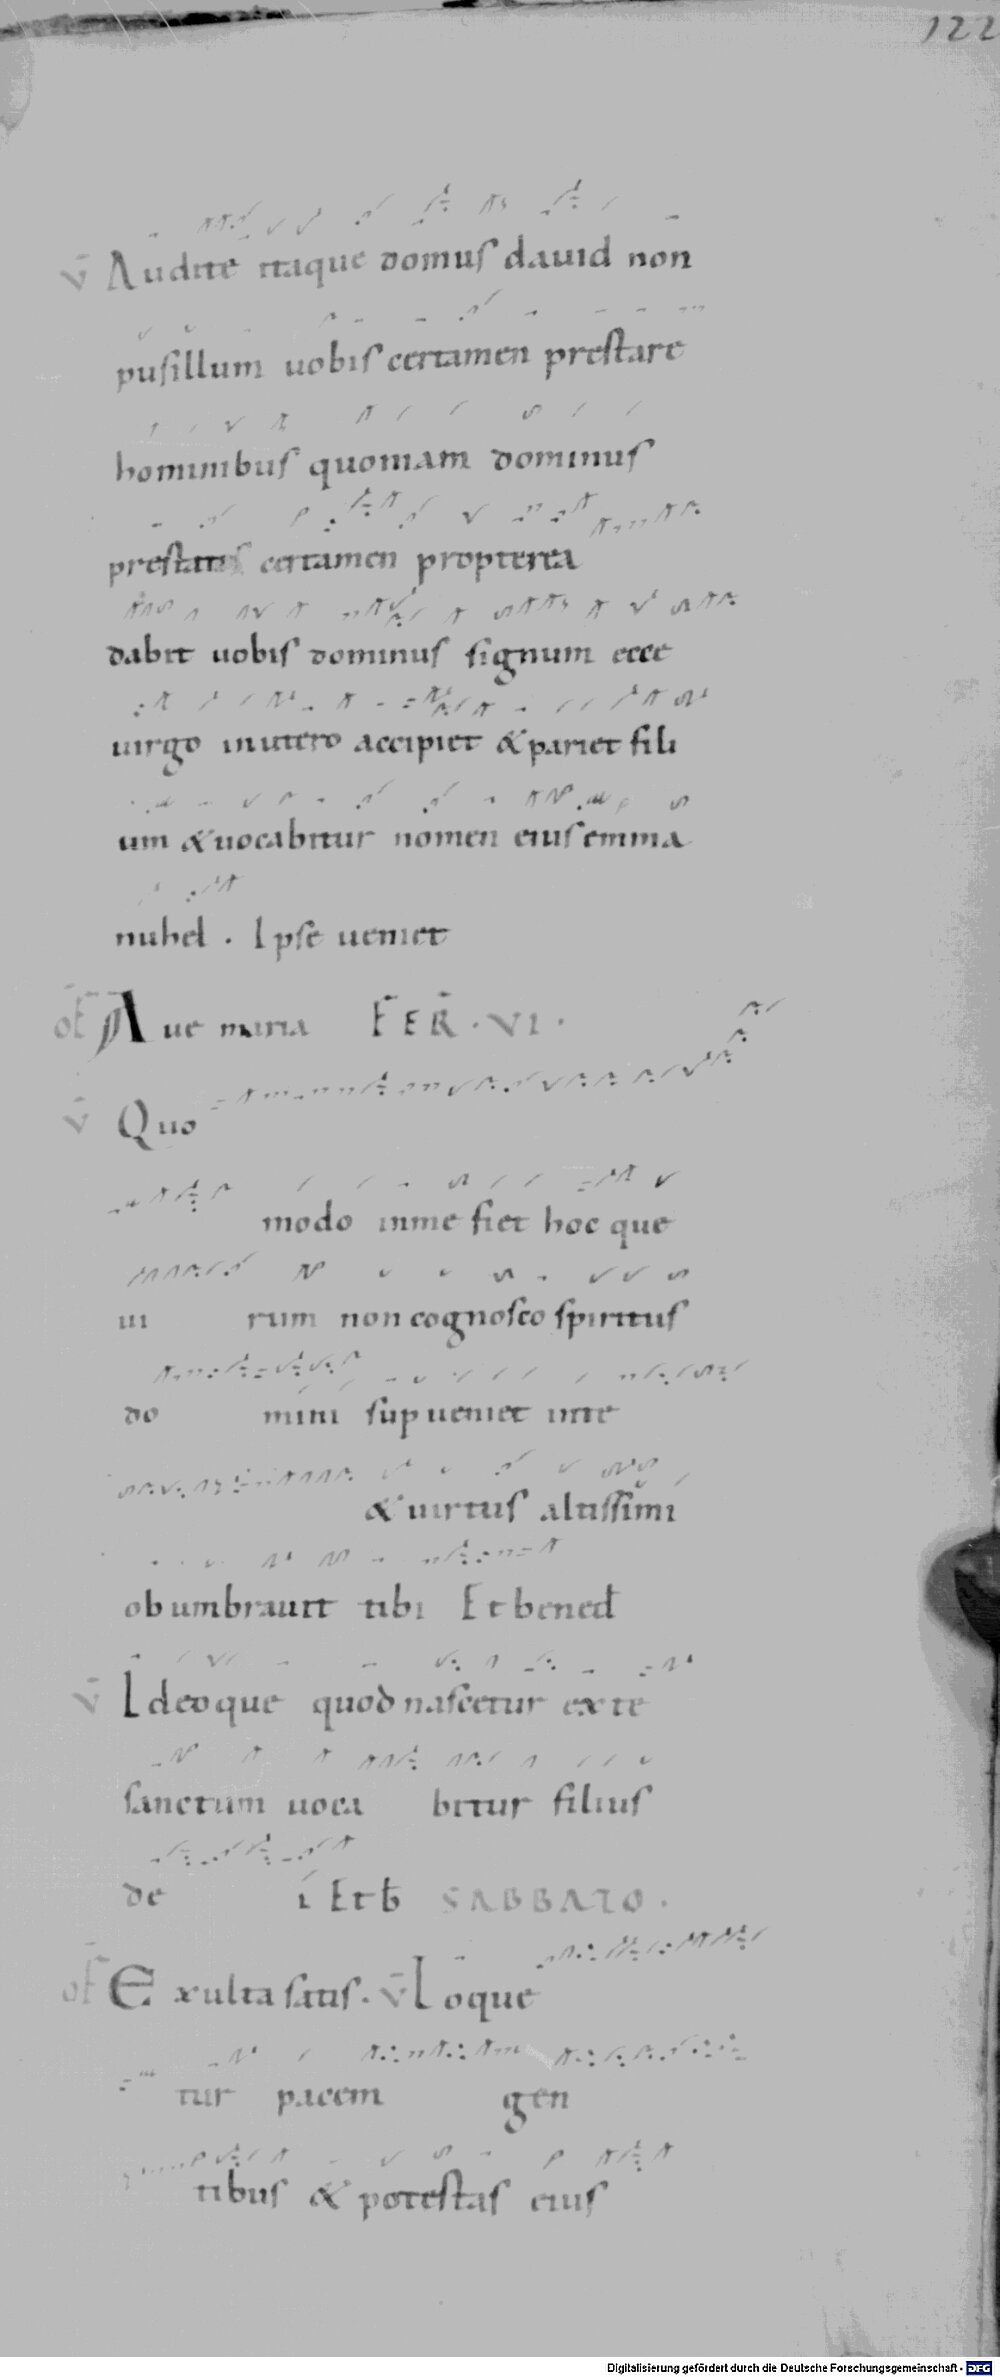 122
v̄ Audite itaque domus dauid non
pusillum uobis certamen prestare
hominibus quoniam dominus
prestatis certamen propterea
dabit uobis dominus signum ecce
uirgo inutero accipiet & pariet fili
um & uocabitur nomen eius emma
nuhel . Ipse ueniet
of Aue maria FER̄ . VI .
v̄ Quo
modo inme fiet hoc que
ui rum non cognosco spiritus
do mini sup ueniet inte
& uirtus altissimi
obumbrauit tibi Et bened
v̄ Ideoque quod nascetur exte
sanctum uoca bitur filius
de i Et b SABBATO .
of Exulta satis . v̄ Loque
tur pacem gen
tibus & potestas eius
Digitalisierung gefördert durch die Deutsche Forschungsgemeinschaft - DFG